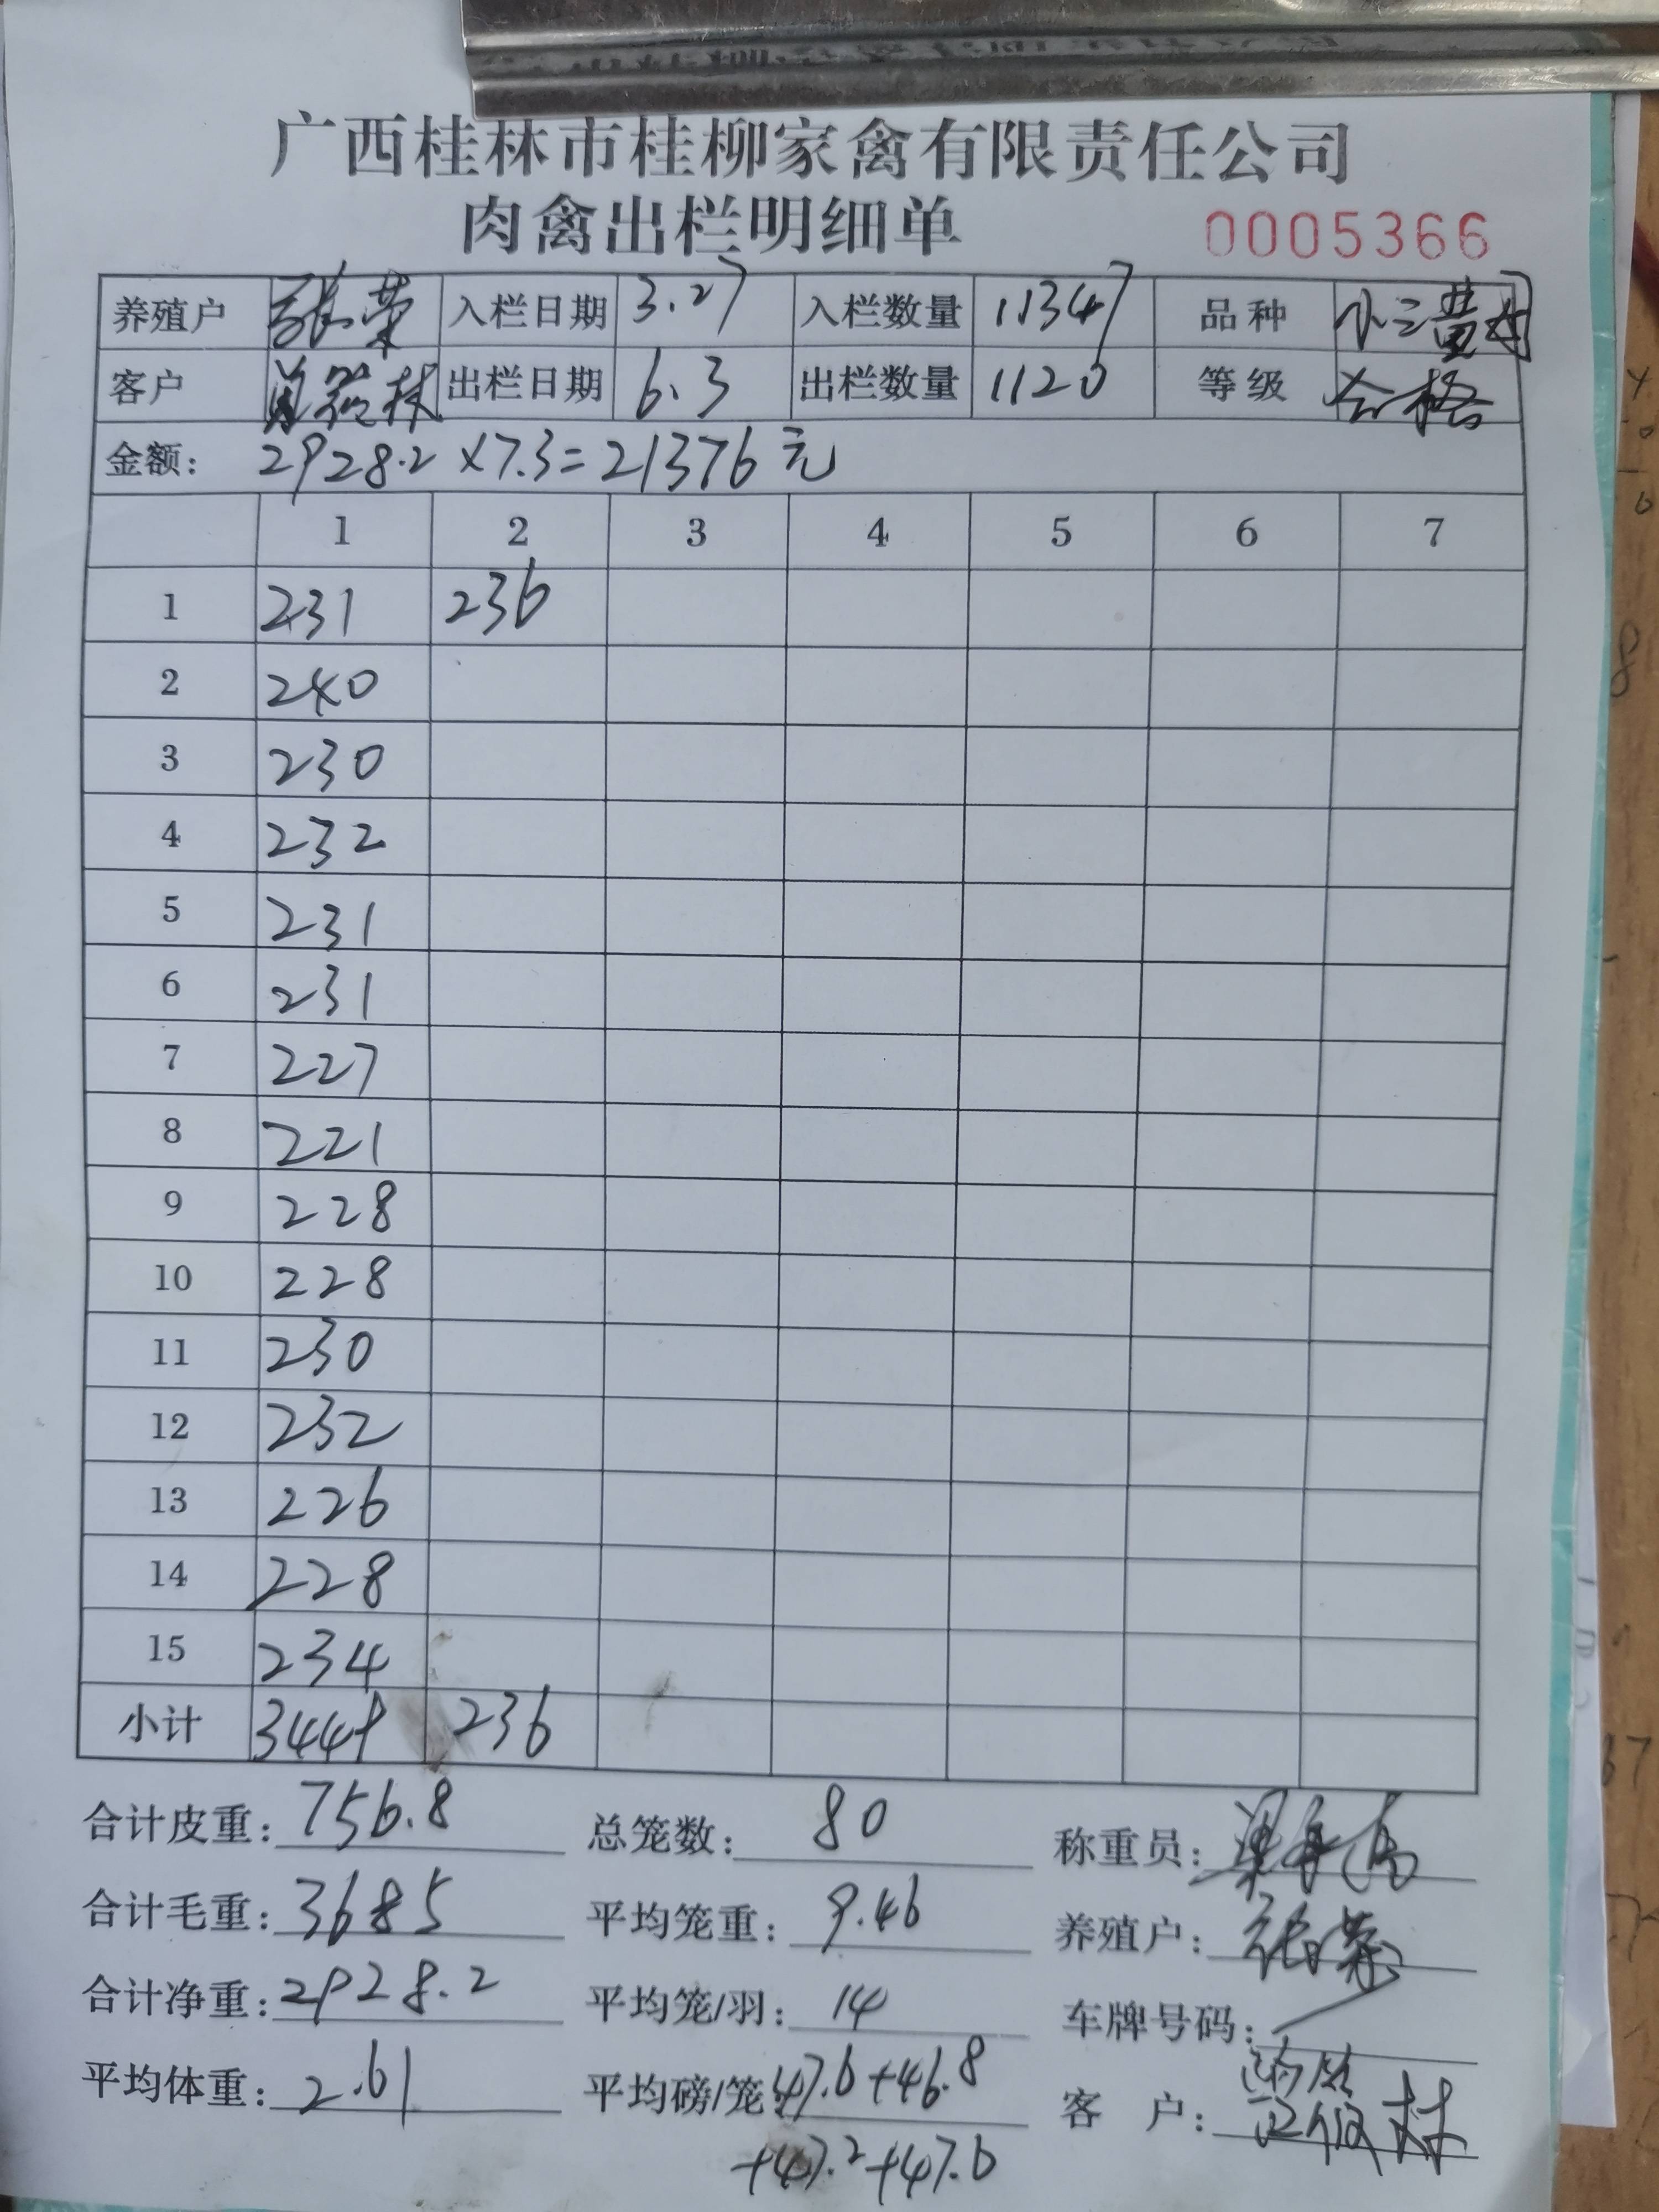 广西桂林市桂柳家禽有限责任公司
肉禽出栏明细单 0005366
养殖户 张荣 入栏日期 3.27 入栏数量 11347 品种 小三黄母
客户 林 出栏日期 6.3 出栏数量 1120 等级 合格
金额: 2928.2 ×7.3=21376元
1 2 3 4 5 6 7
1 231 236
2 240
3 230
4 232
5 231
6 231
7 227
8 221
9 228
10 228
11 230
12 232
13 226
14 228
15 234
小计 3449 236
合计皮重: 756.8 总笼数: 80 称重员:
合计毛重: 3685 平均笼重: 9.46 养殖户: 张荣
合计净重: 2928.2 平均笼/羽: 14 车牌号码:
平均体重: 2.61 平均磅/笼: 47.6+46.8 客户: 林
+47.2+47.6